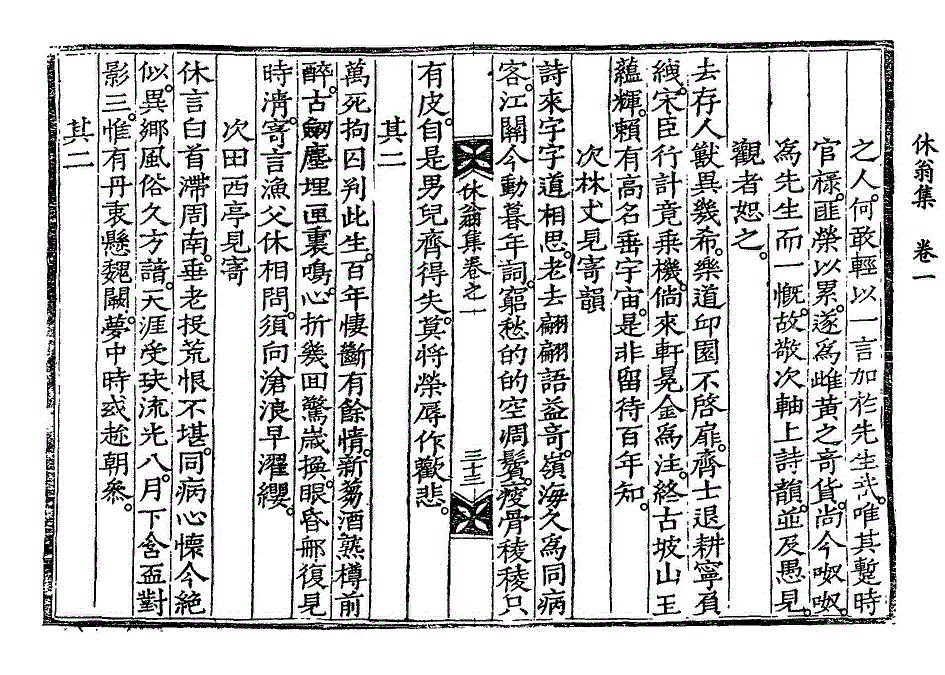 休翁集　卷一
之人。何敢輕以一言加於先生哉。唯其蹔時
官祿。匪榮以累。遂爲雌黃之奇貨。尚今呶呶。
爲先生而一慨。故敬次軸上詩韻。並及愚見。
觀者恕之。
去存人獸異幾希。樂道邱園不啓扉。齊士退耕寧負
綫。宋臣行計竟乘機。倘來軒冕金爲注。終古坡山玉
蘊輝。賴有高名垂宇宙。是非留待百年知。
次林丈見寄韻
詩來字字道相思。老去翩翩語益奇。嶺海久爲同病
客。江關今動暮年詞。窮愁的的空凋鬢。瘦骨稜稜只
休翁集卷之一　三十三
有皮。自是男兒齊得失。莫將榮辱作歡悲。
其二
萬死拘囚判此生。百年悽斷有餘情。新蒭酒熟樽前
醉。古劒塵埋匣裏鳴。心折幾回驚歲換。眼昏那復見
時淸。寄言漁父休相問。須向滄浪早濯纓。
次田西亭見寄
休言白首滯周南。垂老投荒恨不堪。同病心懷今絶
似。異鄕風俗久方諳。天涯受玦流光八。月下含盃對
影三。惟有丹衷懸魏闕。夢中時或趁朝叅。
其二